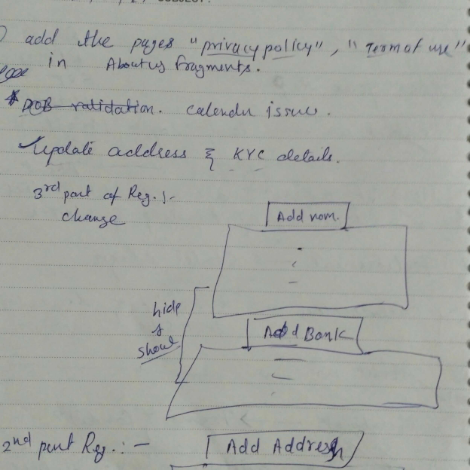 add the pages "privacy policy", "Term of use"
in Aboutus fragments.
DOB validation. calendar issue.
Update address & KYC details.
3rd part of Reg. :-
change
Add nom.
hide
&
show
Add Bank
2nd part Reg. : -
Add Address